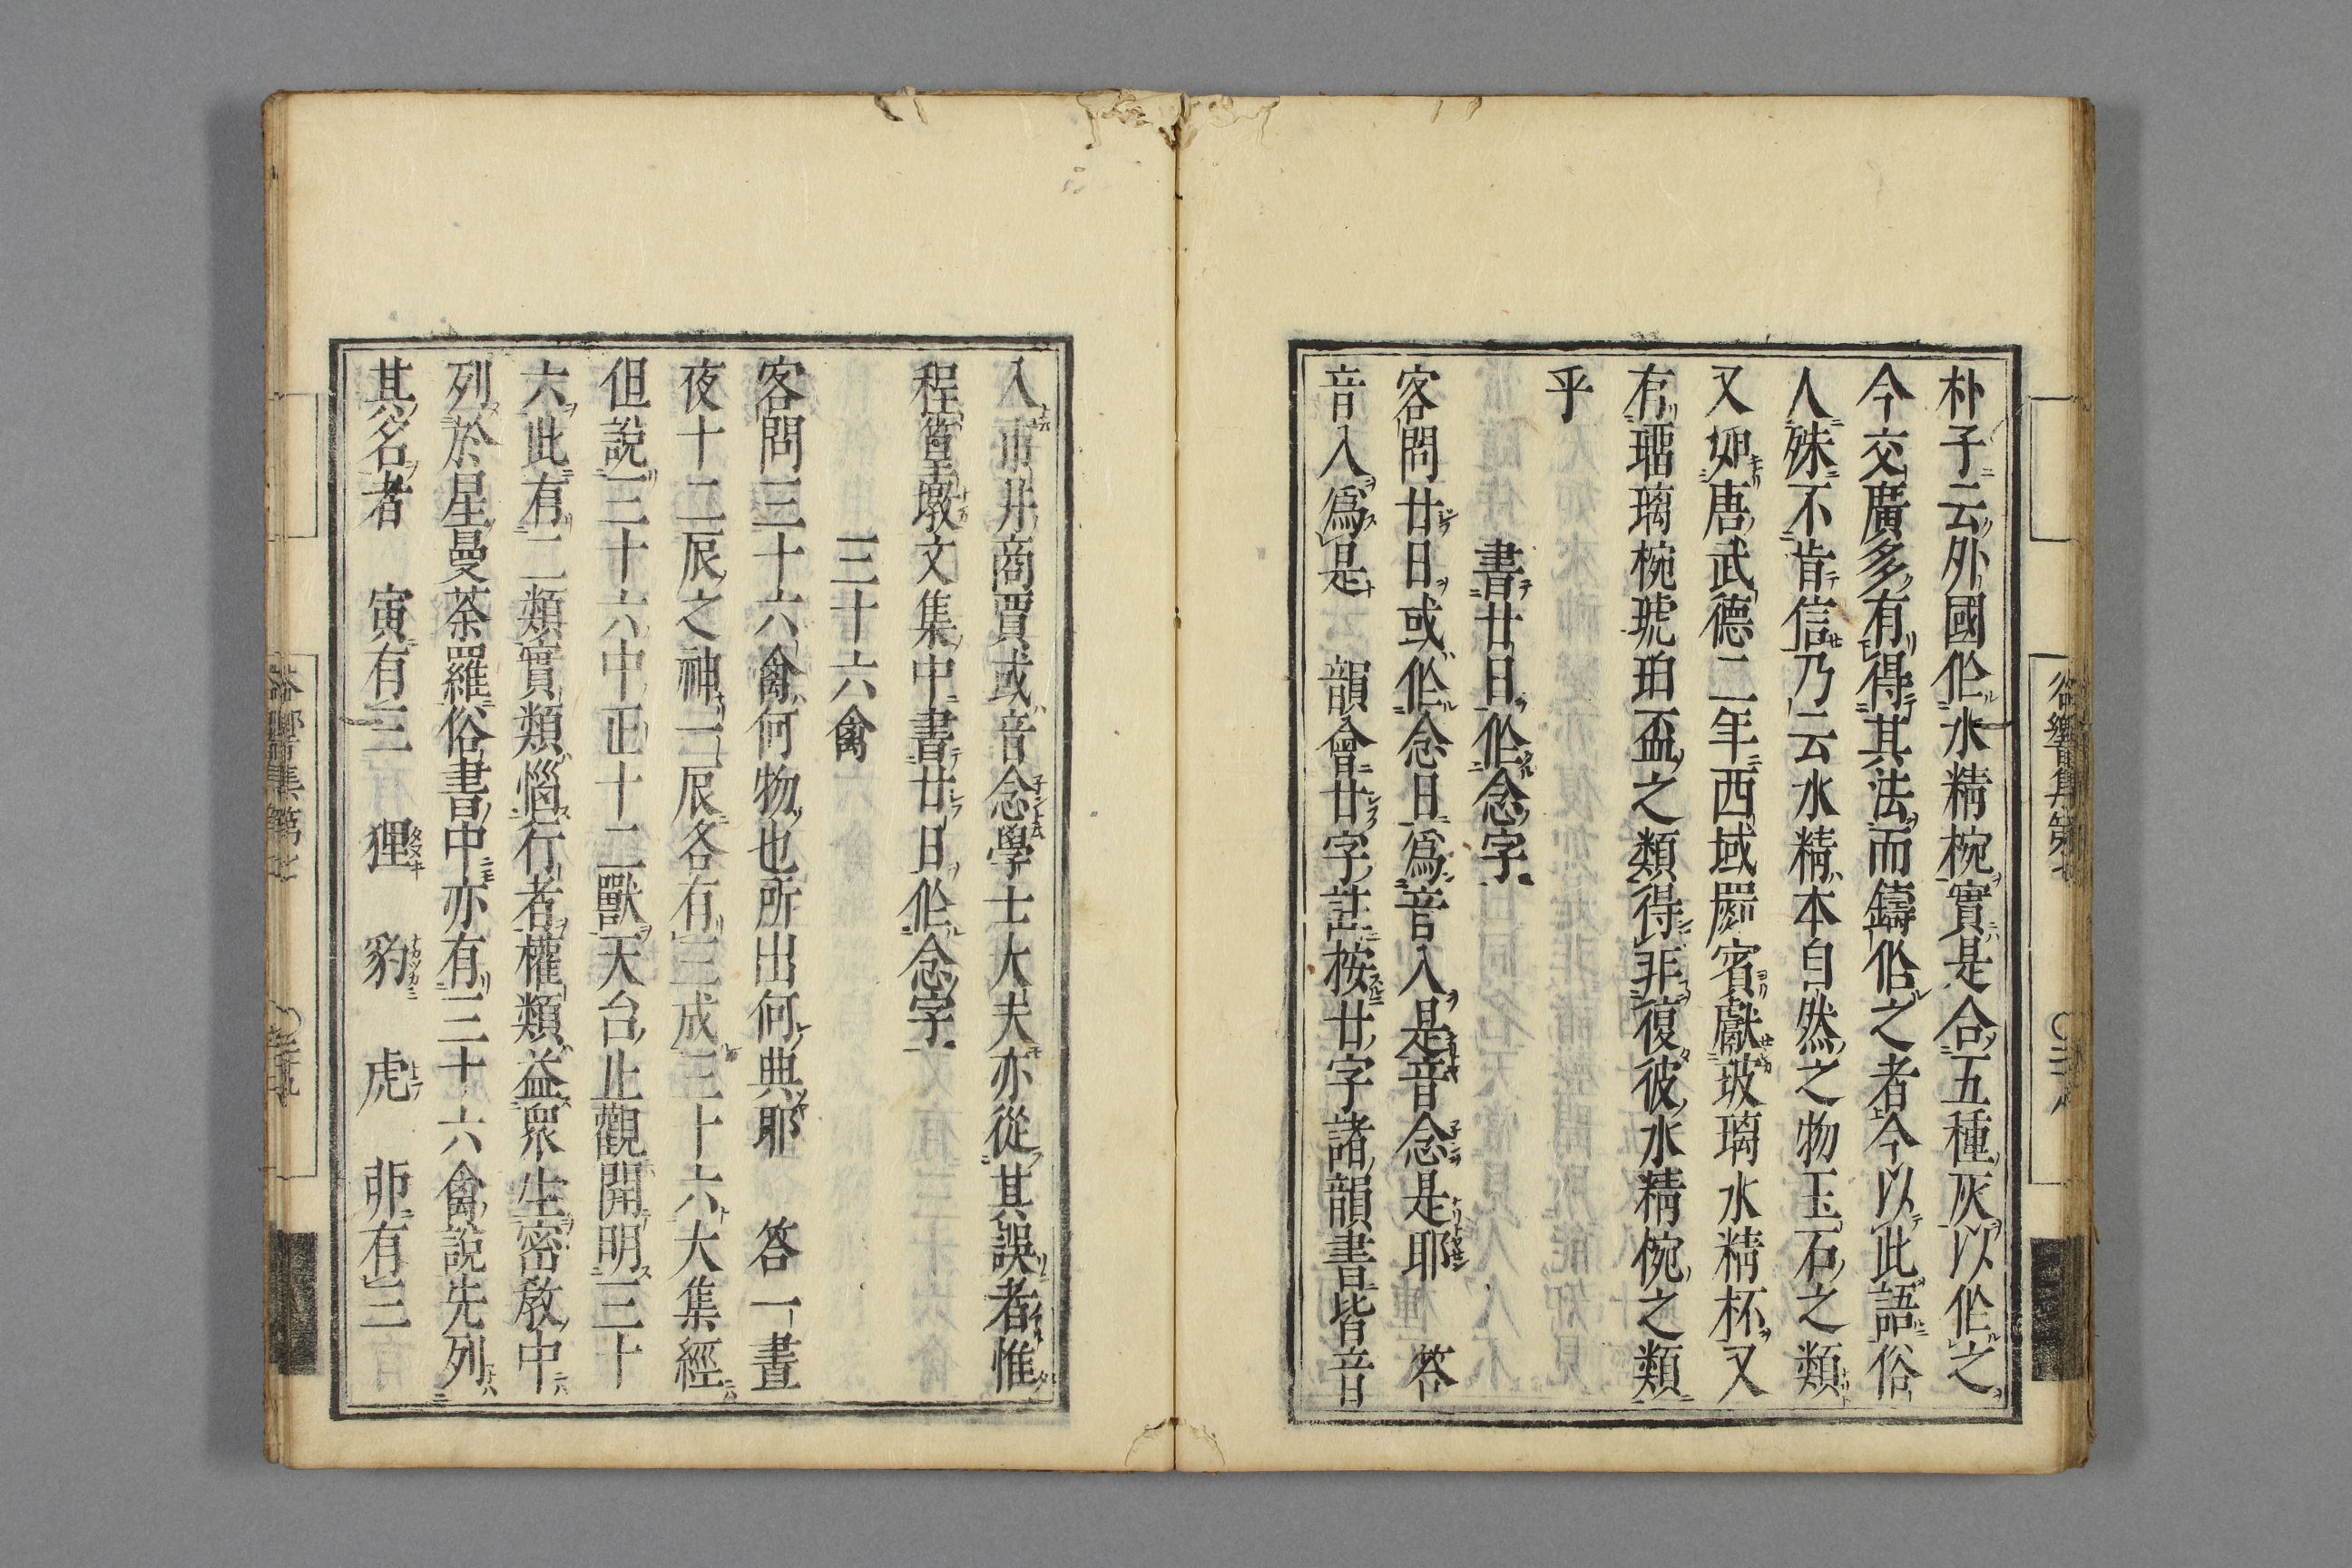 朴子云外國作水精椀實是合五種灰以作之
今交廣多有得其法而鑄作之者今以此語俗
人殊不肯信乃云水精本自然之物玉石之類
又如唐武德二年西域罽賓獻玻璃水精杯又
有瑠璃椀琥珀盃之類得非復彼水精椀之類
乎
書廿日作念字
客問廿日或作念日爲音入是音念是耶 答
音入爲是 韻會廿字註按廿字諸韻書皆音
谷響集第七
入市井商賈或音念學士大夫亦從其誤者惟
程篁墩文集中書廿日作念字
三十六禽
客問三十六禽何物也所出何典耶 答一晝
夜十二辰之神一辰各有三成三十六大集經
但說三十六中正十二獸天台止觀開明三十
六此有二類實類惱行者權類益衆生密教中
列於星曼荼羅俗書中亦有三十六禽說先列
其名者 寅有三 狸 豹 虎 卯有三
谷響集第七